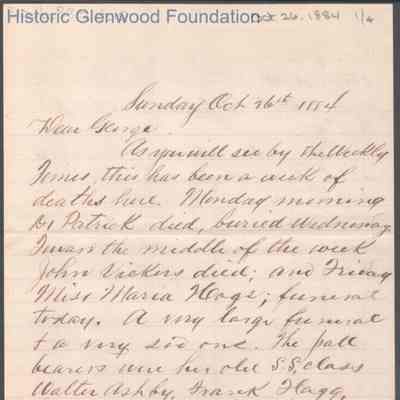 Historic Glenwood Foundation
Oct 26, 1884 1/4
Sunday Oct 26th 1884
Dear George
As you will see by the Weekly
Times, this has been a week of
deaths here. Monday morning
Dr Patrick died, buried Wednesday
the middle of the week
John Vickers died; and Friday
Miss Maria Hogs; funeral
today. A very large funeral
& a very sad one. The pall
bearers were her old S.S. class
Walter Ashby, Frank Flagg,